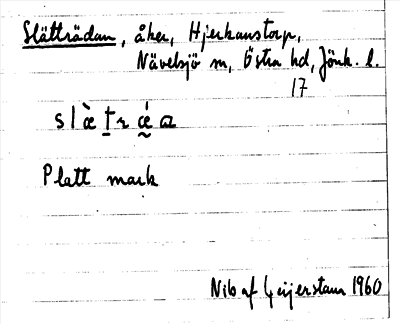 Slätträdan, åker, Hjerkanstorp,
Nävelsjö sn, Östra hd, Jönk. l.
17
Platt mark
Nils af Geijerstam 1960